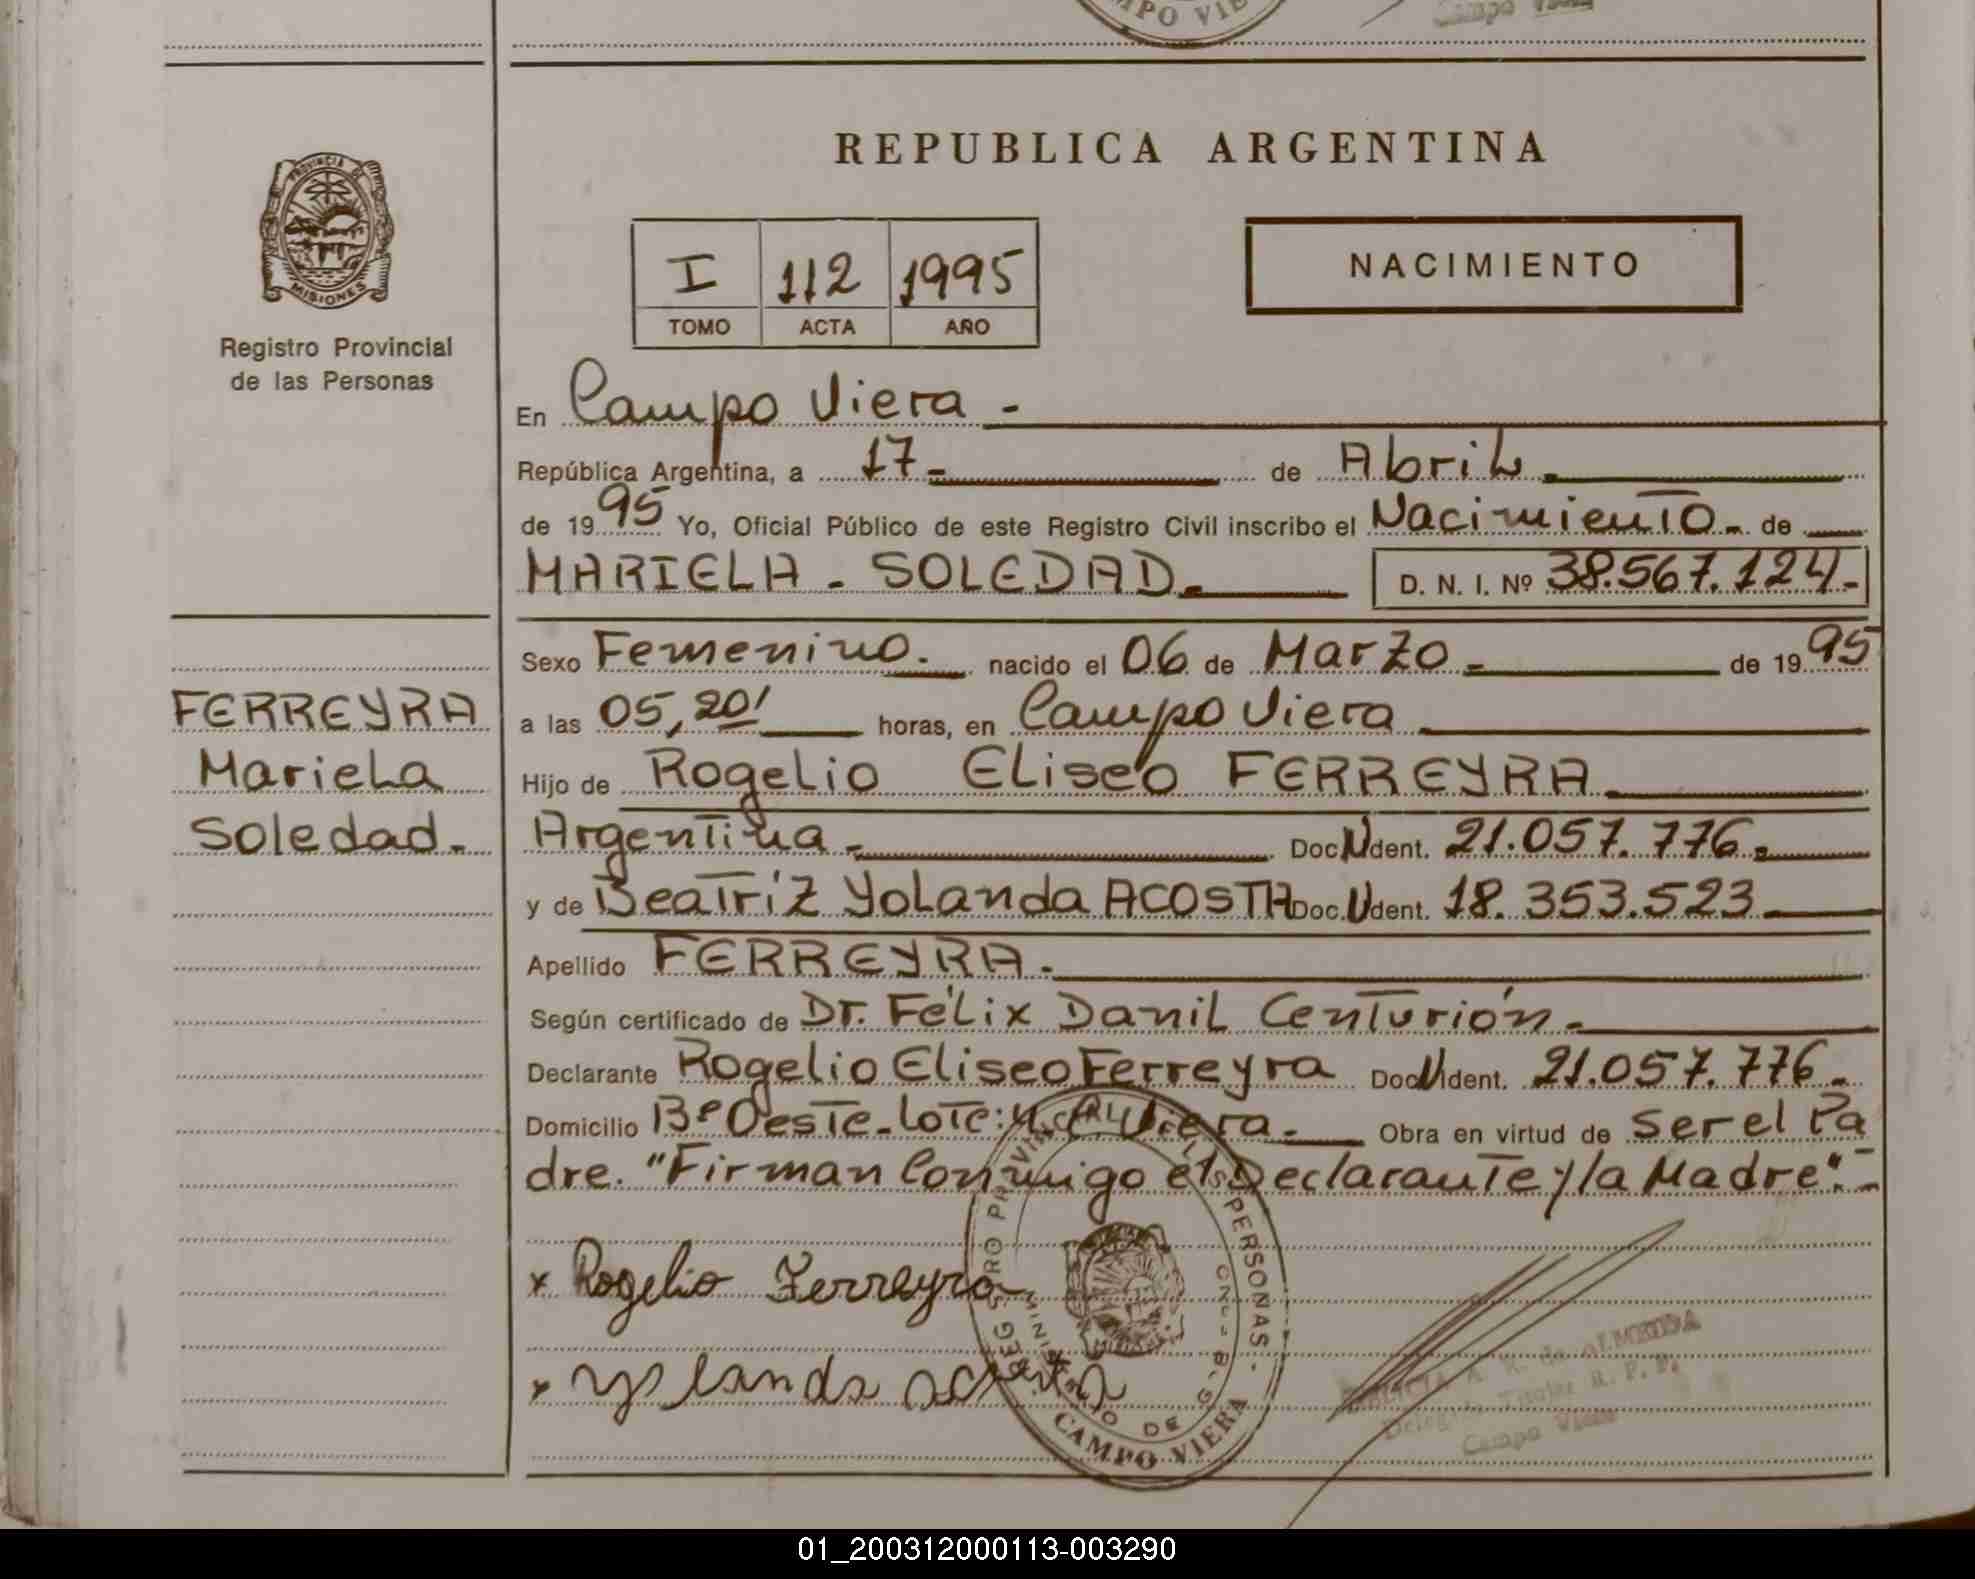 CAMPO VIE
Campo Viera
REPUBLICA ARGENTINA
PROVINCIA DE
MISIONES
Registro Provincial
de las Personas
I 112 1995
TOMO ACTA AÑO
NACIMIENTO
En Campo Viera -
República Argentina, a 17- de Abril.
de 1995 Yo, Oficial Público de este Registro Civil inscribo el Nacimiento- de
MARIELA - SOLEDAD. D. N. I. Nº 38.567.124-
Sexo Femenino. nacido el 06 de Marzo - de 1995
a las 05,20' horas, en Campo Viera
Hijo de Rogelio Eliseo FERREYRA
Argentina - Doc.N.Ident. 21.057.776.
y de Beatriz Yolanda ACOSTA Doc.U.Ident. 18.353.523-
Apellido FERREYRA.
Según certificado de Dr. Félix Danil Centurión.
Declarante Rogelio Eliseo Ferreyra Doc.N.Ident. 21.057.776-
Domicilio Bº Oeste-Lote:4.C. Viera.- Obra en virtud de ser el Pa
dre. "Firman Conmigo el Declarante y la Madre".-
FERREYRA
Mariela
Soledad.
x Rogelio Ferreyra
x yolanda acosta
REGISTRO PROVINCIAL DE LAS PERSONAS -
MINISTERIO DE G.
CAMPO VIERA
A. R. de ALMEIDA
Delegada Titular R. P. P.
Campo Viera
01_200312000113-003290